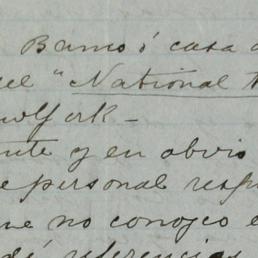 Banco ó casa d
el "National 
ewyork -
nte y en obvio
e personal resp
ue no conozco e
dé referencias